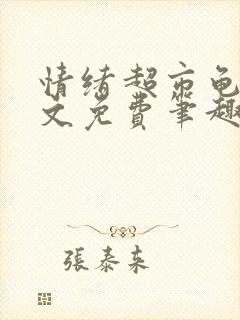 情绪超市龟
文免费笔趣
張泰来